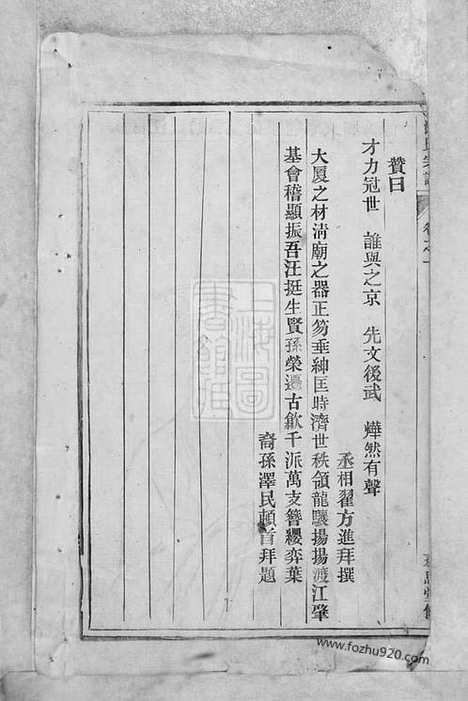 贊曰
才力冠世　誰與之京　先文後武　燁然有聲
丞相翟方進拜撰
大厦之材淸廟之器正笏垂紳匡時濟世秩領龍驤揚揚渡江肇
基會稽顯振吾汪挺生賢孫榮還古歙千派萬支簪纓弈葉
裔孫澤民頓首拜題
卷之一
上海圖書館藏
www.fozhu920.com